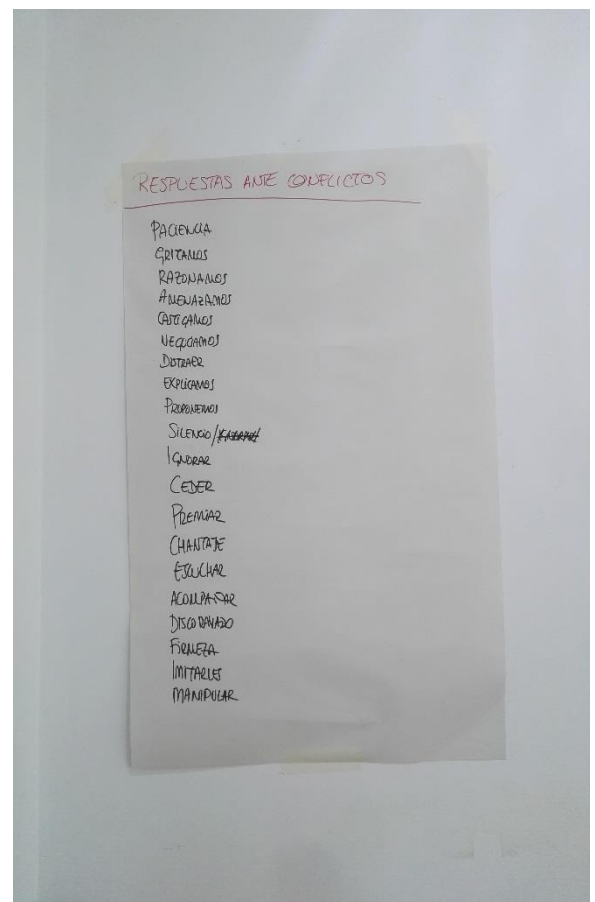 RESPUESTAS ANTE CONFLICTOS
PACIENCIA
GRITAMOS
RAZONAMOS
AMENAZAMOS
CASTIGAMOS
NEGOCIAMOS
DISTRAER
EXPLICAMOS
PROPONEMOS
SILENCIO/
IGNORAR
CEDER
PREMIAR
CHANTAJE
ESCUCHAR
ACOMPAÑAR
DISCO RAYADO
FIRMEZA
IMITARLES
MANIPULAR